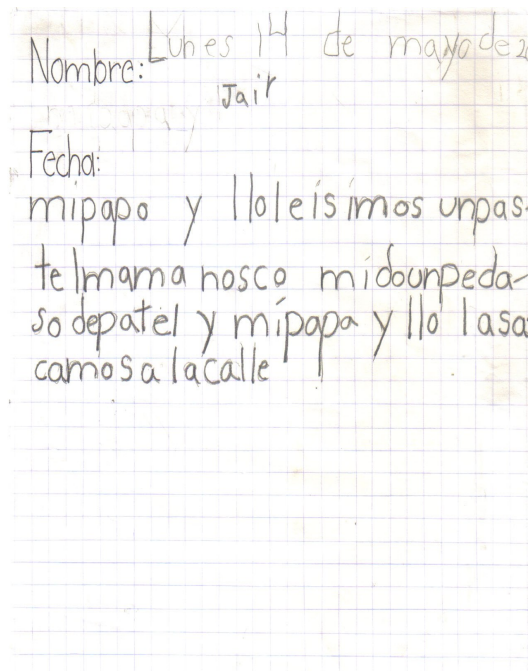 Lunes 14 de mayo de 2
Nombre:
Jair
Fecha:
mipapa y lloleisimos unpas-
telmama nosco midounpeda-
so depatel y mipapa y llo lasa
camos a lacalle